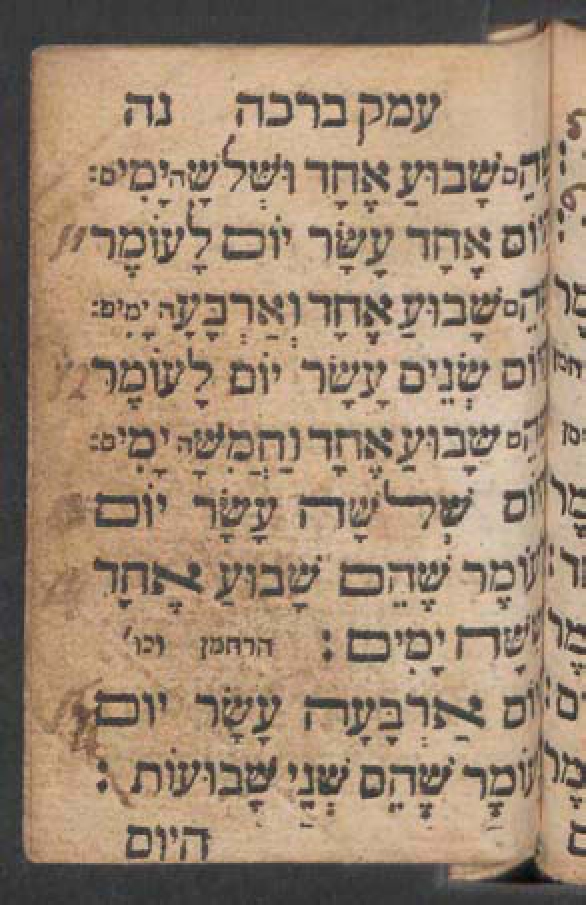 עמק ברכה נה
שָׁבוּעַ אֶחָד וּשְׁלֹשָׁה יָמִים:
יוֹם אֶחָד עָשָׂר יוֹם לָעוֹמֶר 11
שָׁבוּעַ אֶחָד וְאַרְבָּעָה יָמִים:
יוֹם שְׁנֵים עָשָׂר יוֹם לָעוֹמֶר 12
שָׁבוּעַ אֶחָד וַחֲמִשָּׁה יָמִים:
שְׁלֹשָׁה עָשָׂר יוֹם
עוֹמֶר שֶׁהֵם שָׁבוּעַ אֶחָד
יָמִים: הרחמן וכו׳
אַרְבָּעָה עָשָׂר יוֹם
עוֹמֶר שֶׁהֵם שְׁנֵי שָׁבוּעוֹת:
היום